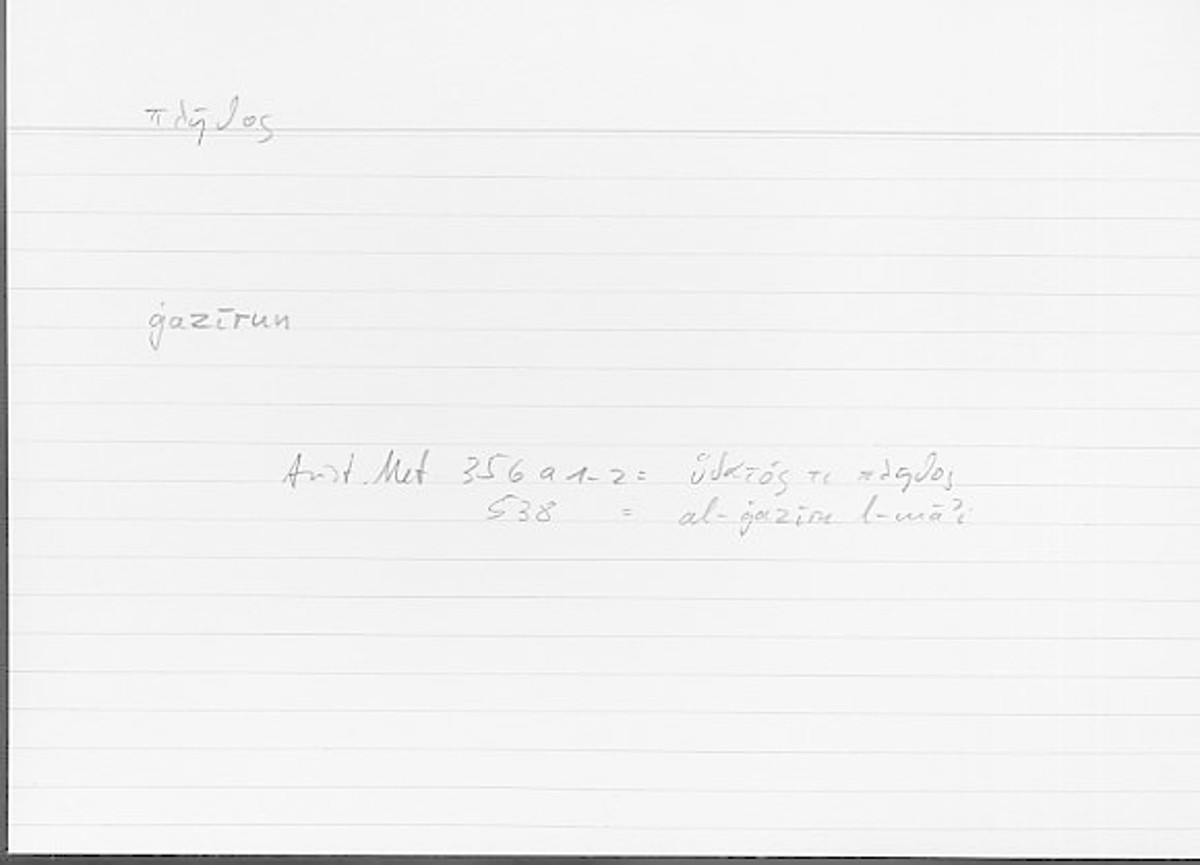 πλῆθος
ġazīrun
Arist. Met 356 a 1-2 = ὕδατός τι πλῆθος
538 = al-ġazīru l-māʾi